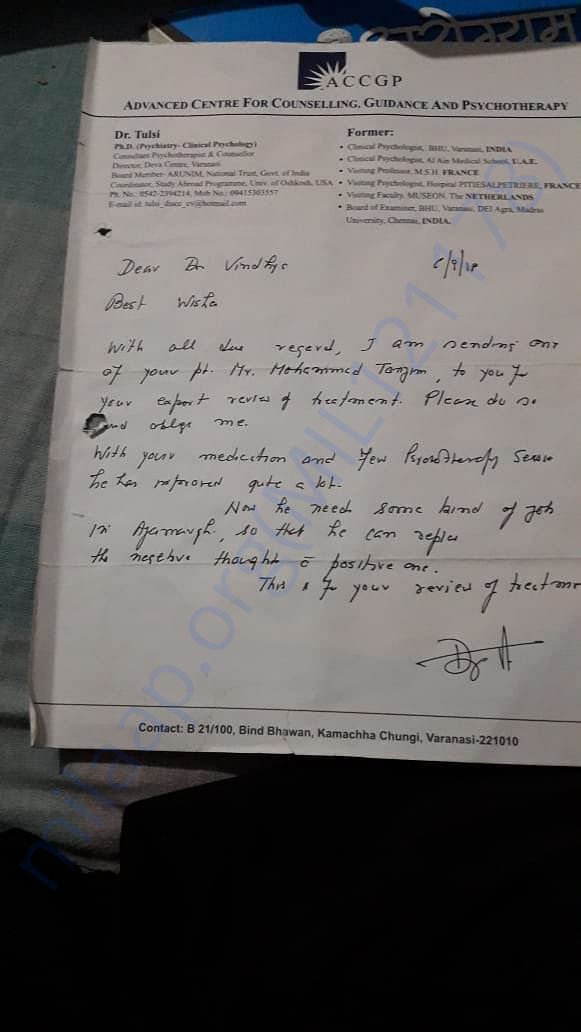 ारोग्यम
ACCGP
ADVANCED CENTRE FOR COUNSELLING, GUIDANCE AND PSYCHOTHERAPY
Dr. Tulsi
Ph.D. (Psychiatry- Clinical Psychology)
Consultant Psychotherapist & Counsellor
Director, Deva Centre, Varanasi
Board Member- ARUNIM, National Trust, Govt. of India
Coordinator, Study Abroad Programme, Univ. of Oshkosh, USA
Ph. No.: 0542-2394214, Mob No.: 09415303557
E-mail id: tulsi_dscc_cv@hotmail.com
Former:
• Clinical Psychologist, BHU, Varanasi, INDIA
• Clinical Psychologist, Al Ain Medical School, U.A.E.
• Visiting Professor, M.S.H. FRANCE
• Visiting Psychologist, Hospital PITIESALPETRIERE, FRANCE
• Visiting Faculty, MUSEON, The NETHERLANDS
• Board of Examiner, BHU, Varanasi, DEI Agra, Madras
University, Chennai, INDIA.
6/9/18
Dear Dr Vindhya
Best
With all due regard, I am sending one
of your pt. Mr. Mohammed, to you for
your expert review of treatment. Please do so
and oblige me.
With your medication and few Psychotherapy
he has improved quite a lot.
Now he need some kind of job
in, so that he can replace
the negative thought c̄ positive one.
This is for your review of treatment
Contact: B 21/100, Bind Bhawan, Kamachha Chungi, Varanasi-221010
milaap.org(MIL121173)